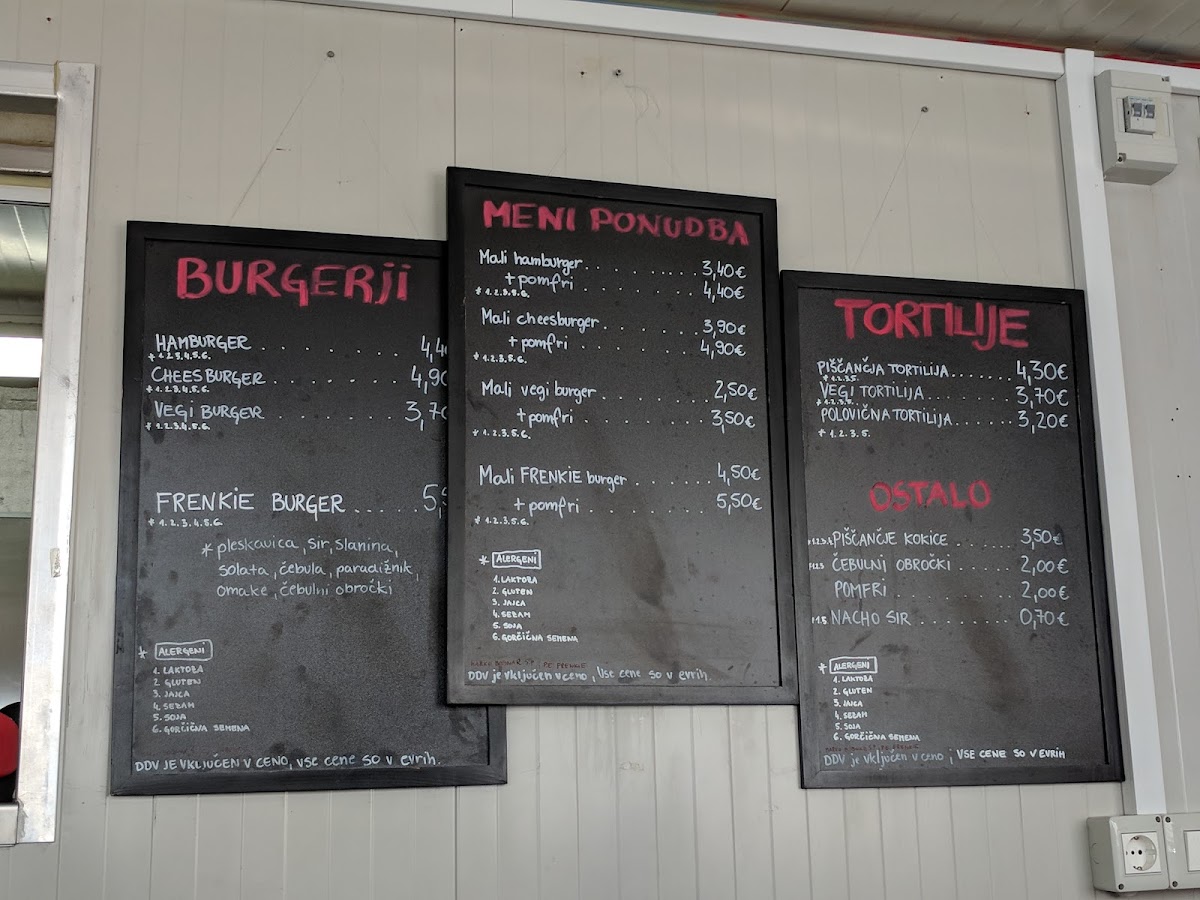 BURGERJI
HAMBURGER . . . . . . . . 4,4
* 1.2.3.4.5.6.
CHEESBURGER . . . . . . . . 4,90
* 1.2.3.4.5.6.
VEGI BURGER . . . . . . . . 3,70
* 1.2.3.4.5.6.
FRENKIE BURGER . . . . . . 5,5
* 1.2.3.4.5.6.
* pleskavica, sir, slanina,
solata, čebula, paradižnik,
omake, čebulni obročki
* ALERGENI
1. LAKTOZA
2. GLUTEN
3. JAJCA
4. SEZAM
5. SOJA
6. GORČIČNA SEMENA
DDV JE VKLJUČEN V CENO, VSE CENE SO V EVRIH.
MENI PONUDBA
Mali hamburger . . . . . . . . 3,40€
+ pomfri . . . . . . . . 4,40€
* 1.2.3.5.6.
Mali cheesburger . . . . . . . 3,90€
+ pomfri . . . . . . . . 4,90€
* 1.2.3.5.6.
Mali vegi burger . . . . . . . 2,50€
+ pomfri . . . . . . . . 3,50€
* 1.2.3.5.6.
Mali FRENKIE burger . . . . . . 4,50€
+ pomfri . . . . . . . . 5,50€
* 1.2.3.5.6.
* ALERGENI
1. LAKTOZA
2. GLUTEN
3. JAJCA
4. SEZAM
5. SOJA
6. GORČIČNA SEMENA
DDV je VKLJUČEN V CENO, Vse cene so v evrih.
TORTILIJE
PIŠČANČJA TORTILIJA . . . . . . 4,30€
* 1.2.3.5.
VEGI TORTILIJA . . . . . . . 3,70€
* 1.2.3.5.
POLOVIČNA TORTILIJA . . . . . . 3,20€
* 1.2.3.5.
OSTALO
PIŠČANČJE KOKICE . . . . . . 3,50€
ČEBULNI OBROČKI . . . . . . 2,00€
POMFRI . . . . . . . . 2,00€
*1.5 NACHO SIR . . . . . . . 0,70€
* ALERGENI
1. LAKTOZA
2. GLUTEN
3. JAJCA
4. SEZAM
5. SOJA
6. GORČIČNA SEMENA
DDV je VKLJUČEN V CENO, VSE CENE SO V EVRIH